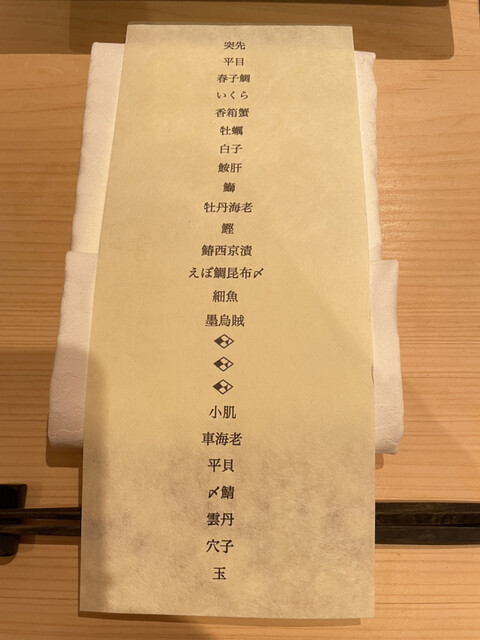 突先
平目
春子鯛
いくら
香箱蟹
牡蠣
白子
鮟肝
鰤
牡丹海老
鰹
鰆西京漬
えぼ鯛昆布〆
細魚
墨烏賊
小肌
車海老
平貝
〆鯖
雲丹
穴子
玉